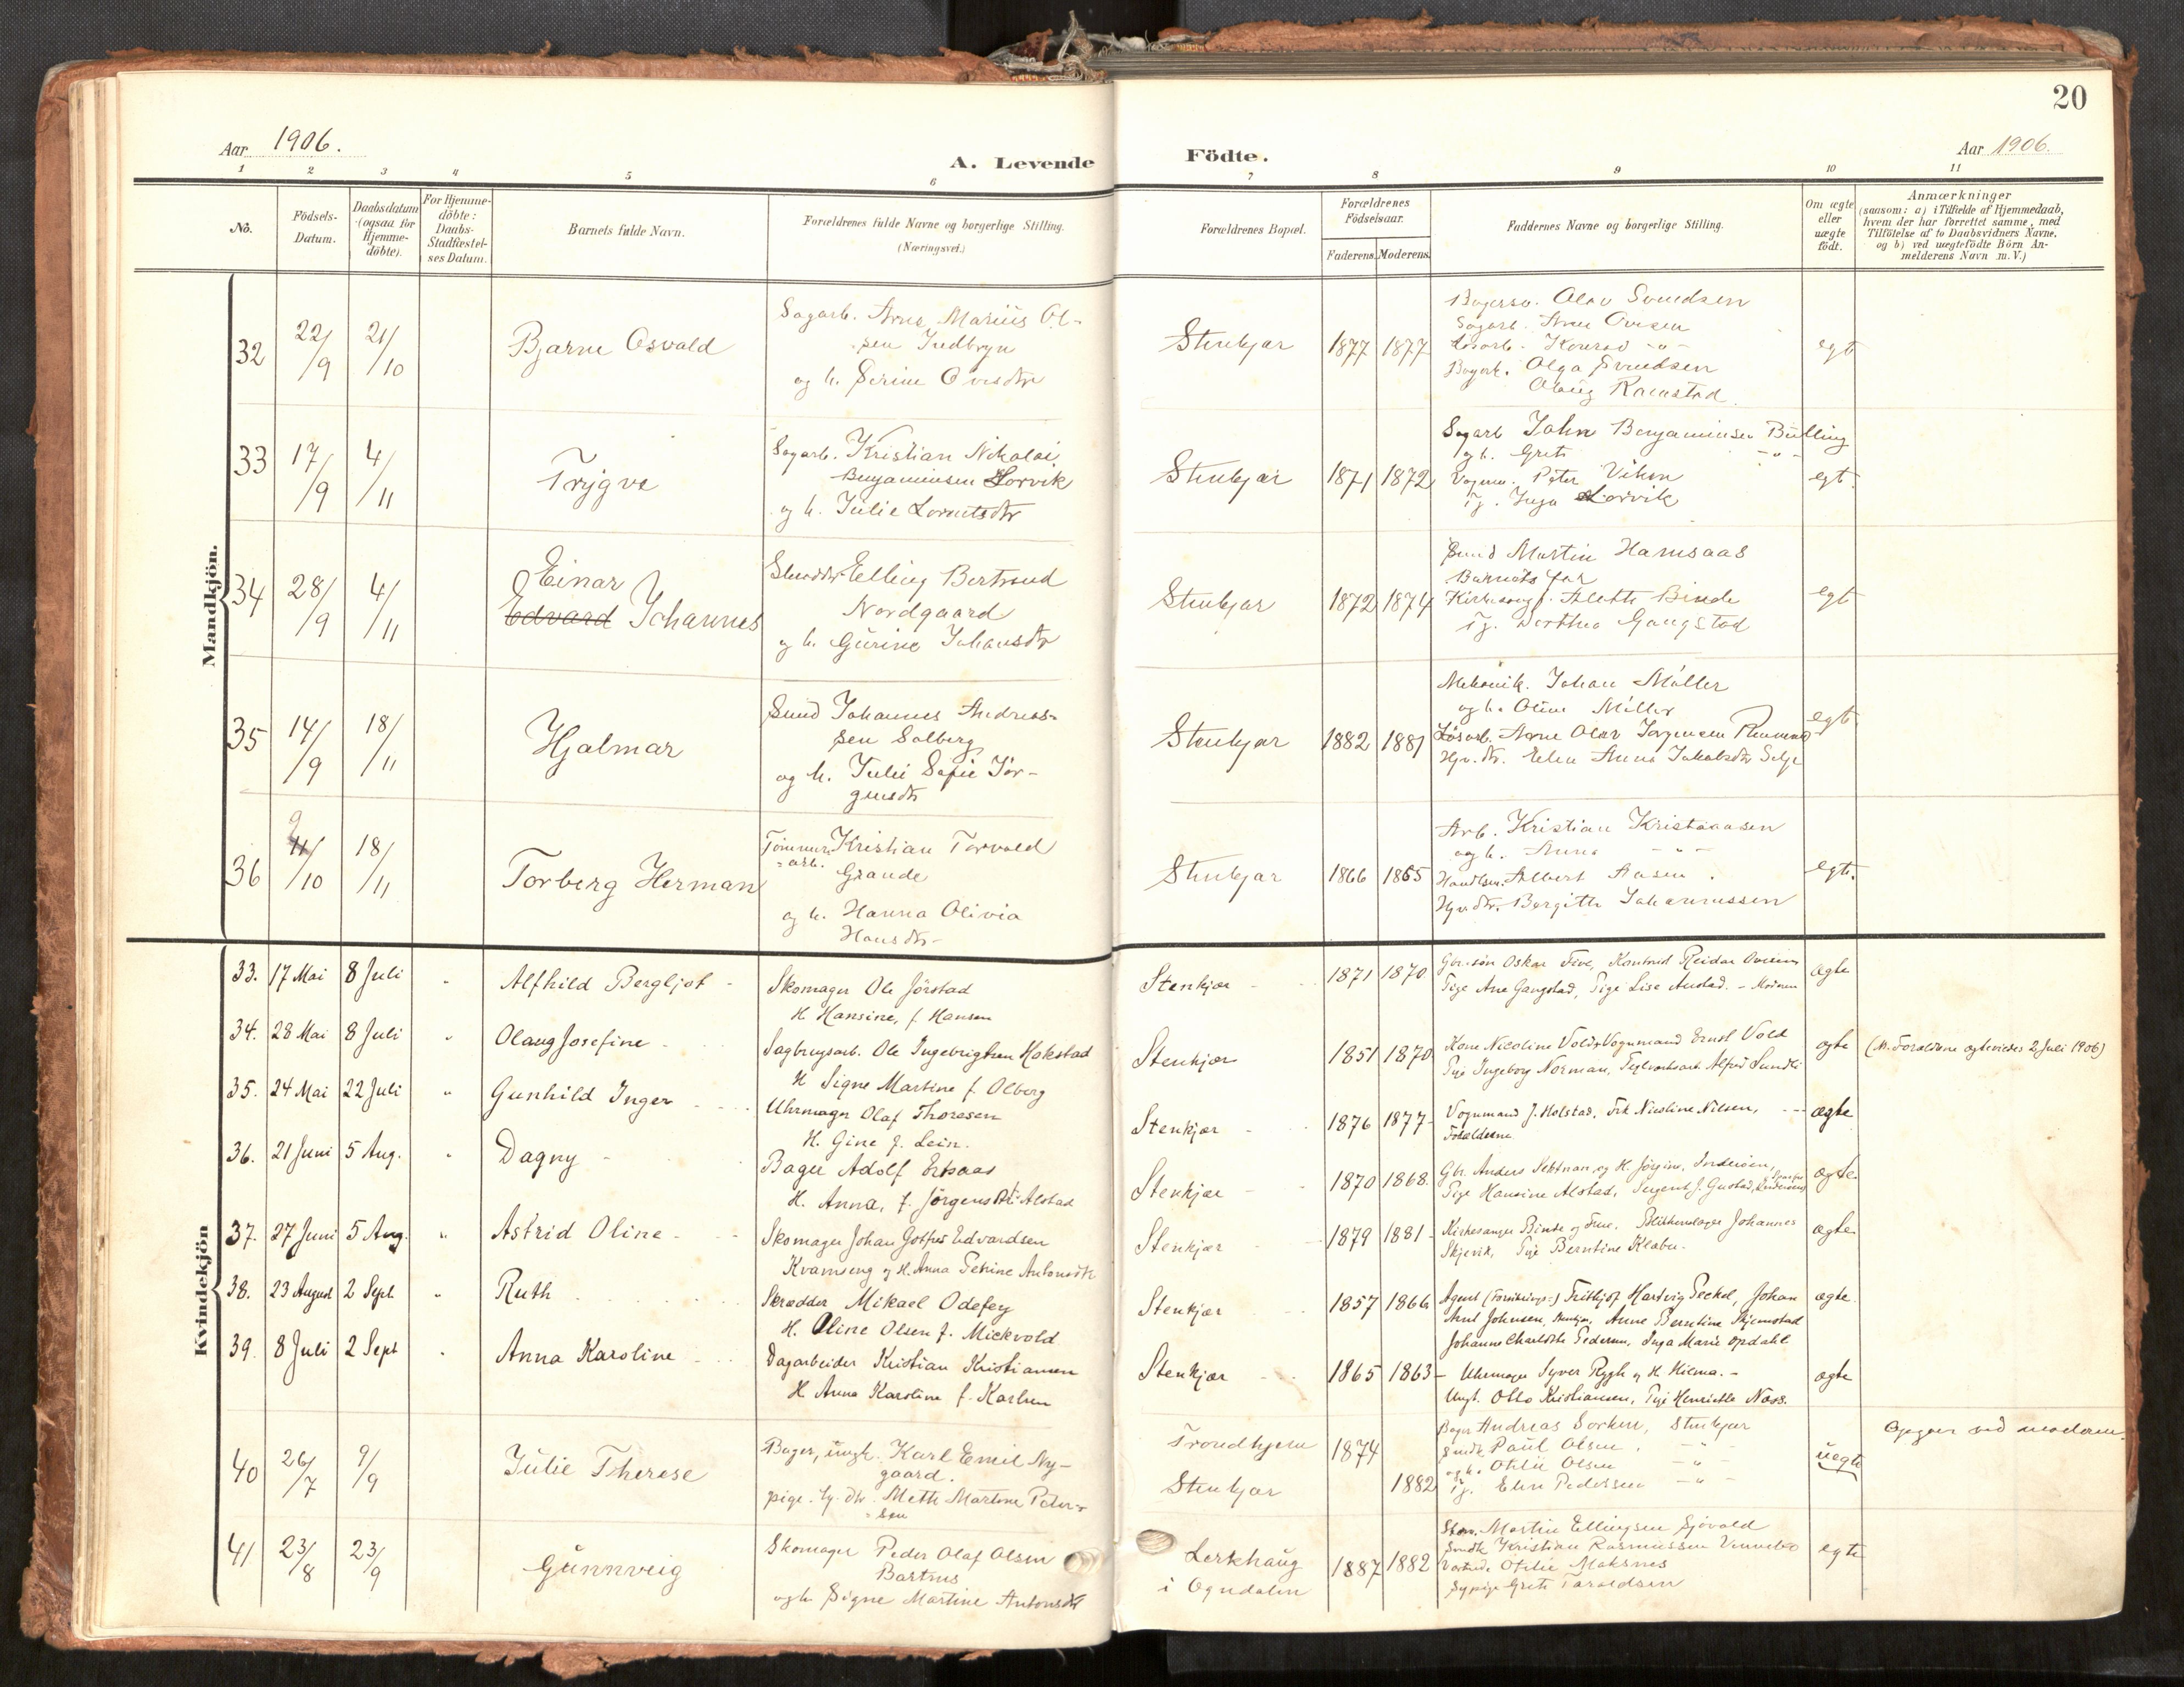 20
Aar 1906.
A. Levende Födte.
Aar 1906.
1 2 3 4 5 6 7 8 9 10 11
No.
Födsels-
Datum.
Daabsdatum
(ogsaa for
Hjemme-
döbte).
For Hjemme-
döbte:
Daabs-
Stadfæstel-
ses Datum.
Barnets fulde Navn.
Forældrenes fulde Navne og borgerlige Stilling.
(Næringsvei.)
Forældrenes Bopæl.
Forældrenes
Födselsaar.
Faderens. Moderens.
Faddernes Navne og borgerlige Stilling.
Om ægte
eller
uægte
födt.
Anmærkninger
(saasom: a) i Tilfælde af Hjemmedaab,
hvem der har forrettet samme, med
Tilföielse af to Daabsvidners Navne,
og b) ved uægtefödte Börn An-
melderens Navn m. V.)
Mandkjön.
32 22/9 21/10 Bjarne Osvald
Sagarb. Arne Marius Ol-
sen Indbryn
og h. Serine Ovesdtr
Stenkjær 1877 1877
Olav Svendsen
Sagarb. Arne Ovesen
Konrad -"-
Olga Svendsen
Olaug Ramstad
egt
33 17/9 4/11 Trygve
Sagarb. Kristian Nikolai
Benjaminsen Lorvik
og h. Julie Lorntsdtr
Stenkjær 1871 1872
Sagarb John Benjaminsen Bulling
og h. Grete -"-
Vognm. Peter Viken
Tj. Inga Lorvik
egt.
34 28/9 4/11 Einar
Edvard Johannes
Elling Bertrand
Nordgaard
og h. Gurine Johansdtr
Stenkjær 1872 1874
Smed Martin Hamsaas
Barnets far
Kirkesang f. Alette Binde
Tj. Dorthea Gangstad
egt
35 14/9 18/11 Hjalmar
Smed Johannes Andreas-
sen Solberg
og h. Julie Sofie Jör-
gensdtr
Stenkjær 1882 1881
Mekanik. Johan Möller
og h. Oline Möller
Lösarb. Arne Olav Jörgensen
Hjv. dtr. Elen Anna Jakobsdtr Selje
egt
36 9/10 18/11 Torberg Herman
Tömmer- Kristian Torvald
arb. Grande
og h. Hanna Olivia
Hansdtr
Stenkjær 1866 1865
Arb. Kristian Kristiansen
og h. Anna -"-
Handlsm. Albert Aasen.
Hjv. dtr. Bergitte Johannessen
egt.
Kvindekjön
33. 17 Mai 8 Juli " Alfhild Bergljot
Skomager Ole Jörstad
H. Hansine, f. Hansen
Stenkjær 1871 1870
Gbr. sön Oskar Five, Kontorist Reidar Ovesen
Pige Ane Gangstad, Pige Lise Austad. - Moderen
ægte
34. 28 Mai 8 Juli " Olaug Josefine
Sagbrugsarb. Ole Ingebrigtsen Hokstad
H. Signe Martine f. Olberg
Stenkjær 1851 1870
Kone Nicoline Vold, Vognmand Ernst Vold
Pige Ingeborg Norman, Teglverksarb. Alfred Sundli
ægte (N. Forældrene ægteviedes 2 Juli 1906)
35. 24 Mai 22 Juli " Gunhild Inger
Uhrmager Olaf Thoresen
H. Gine f. Lein.
Stenkjær 1876 1877
Vognmand J. Holstad, Frk Nicoline Nilsen,
Forældrene
ægte
36. 21 Juni 5 Aug. " Dagny
Bager Adolf Erksaas
H. Anna, f. Jörgensdtr Alstad
Stenkjær 1870 1868.
Gbr. Anders Vestman og H. Jörgine, Inderöen,
Pige Hansine Alstad, Sergent J. Gustad,
ægte
37. 27 Juni 5 Aug. " Astrid Oline
Skomager Johan Gotfred Edvardsen
Kvamseng og H. Anna Petrine Antonsdtr
Stenkjær 1879 1881
Kirkesanger Binde og Frue, Blikkenslager Johannes
Skjevik, Pige Berntine Klæbu.
ægte
38. 23 August 2 Sept. " Ruth
Skrædder Mikael Odefey
H. Oline Olsen f. Mickvold
Stenkjær 1857 1866
Agent (Forsikrings-) Frithjof Hartvig Peckel, Johan
Arnt Johnsen, Stenkjær, Anne Berntine Skjemstad
Johanne Charlotte Pedersen, Inga Marie Opdahl
ægte
39. 8 Juli 2 Sept " Anna Karoline
Dagarbeider Kristian Kristiansen
H. Anna Karoline f. Karlsen
Stenkjær 1865 1863
Uhrmager Syver Rygh og H. Hilma. -
Ungk. Otto Kristiansen, Pige Henriette Næss.
ægte
40 26/7 9/9 Julie Therese
Bager, ungk. Karl Emil Ny-
gaard.
pige. tj. dtr. Mette Martine Peder-
sen
Trondhjem 1874
Stenkjær 1882
Bager Andreas Sorken, Stenkjær
Smedk Paul Olsen, -"-
og h. Otilie Olsen -"-
Tj. Elen Pedersen -"-
uegte
Opgivet ved moderen.
41 23/8 23/9 Gunnveig
Skomager Peder Olaf Olsen
Bartnes
og h. Signe Martine Antonsdtr
Lerkhaug
i Ogndalen 1887 1882
Martin Ellingsen Sjövold
Smedk Kristian Rasmussen Vennebo
Ofelie Moksnes
Sypige Grete Taraldsen
egte